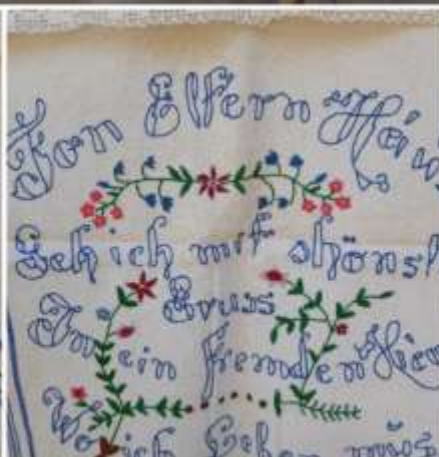 Fon Eltern Háu
Geh ich mit shönst
Gruss
In ein fremden
Wo ich Leben müs